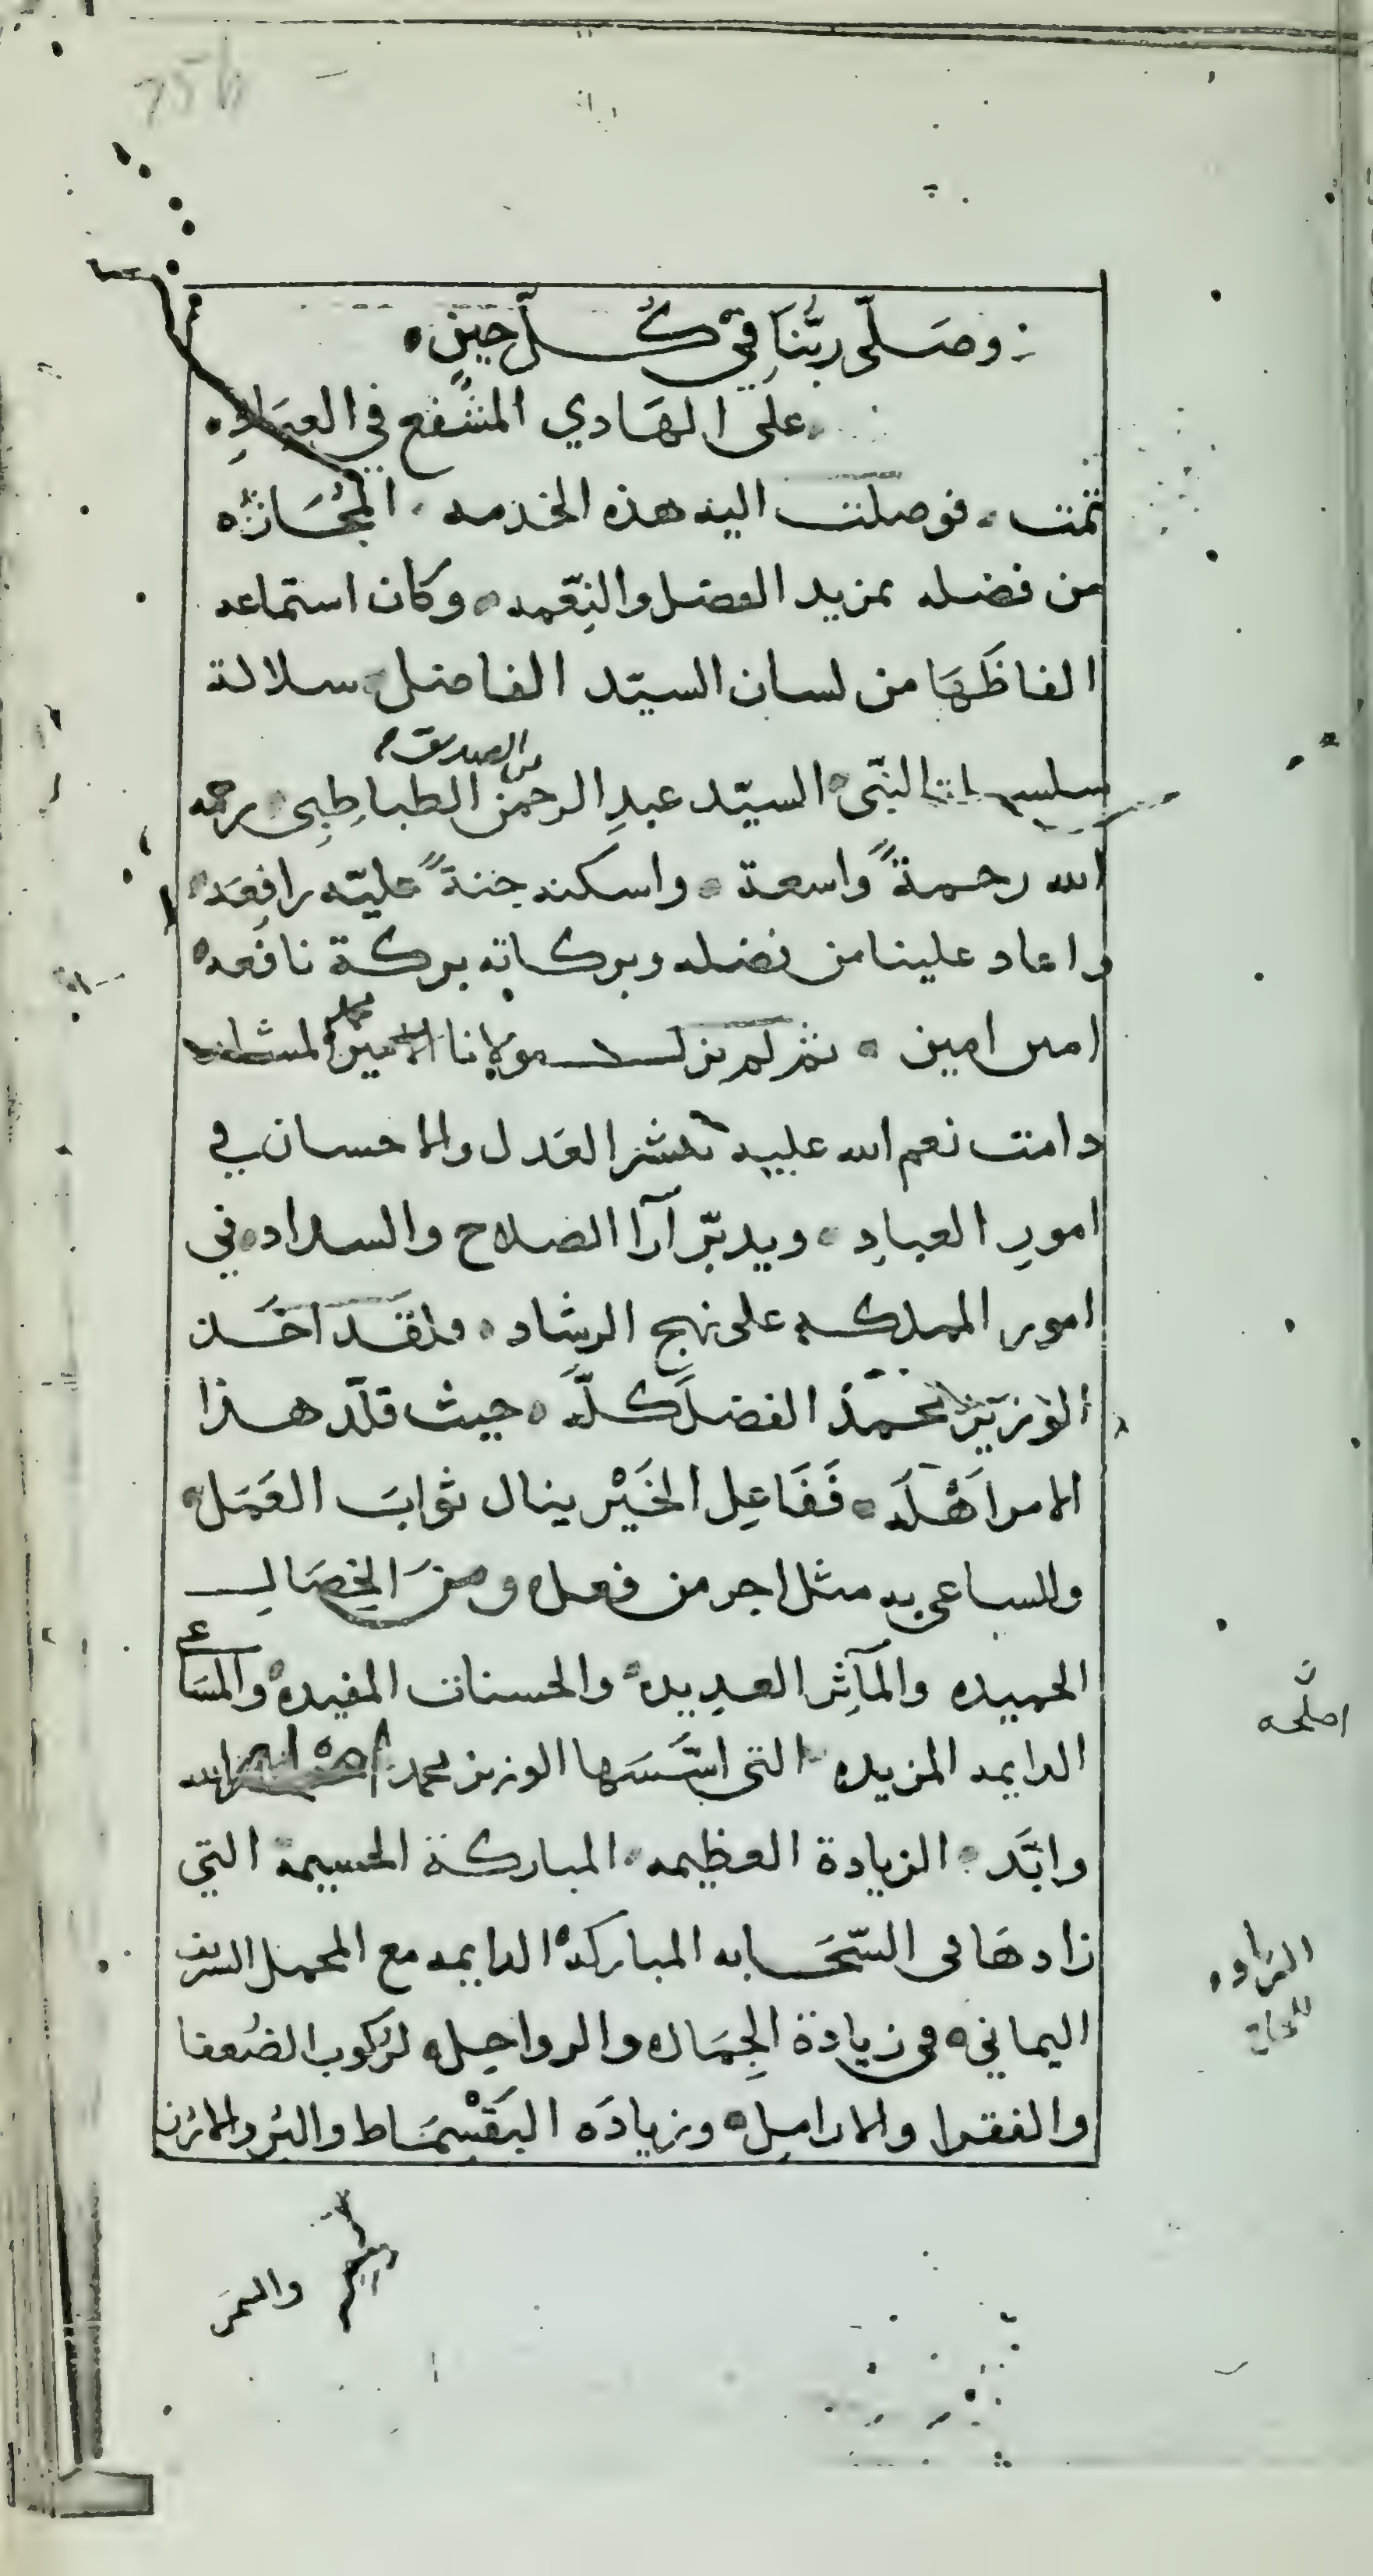 75b
وصَلّى ربُّنَا في كُلّ حينٍ
على الهَادي المشفّع في العِبَادِ
تمت فوصلت اليه هذه الخدمه المُجَازَه
من فضله بمزيد الفضل والنِعّمه وكان استماعه
الفاظَهَا من لسان السيّد الفاضل سلالة
النّبى السيّد عبدِ الرحمن الطباطِبى رحمه
الله رحمةً واسعة واسكنه جنةً عليّه رافِعَه
واعاد علينا من فضله وبركاته بركة نافعه
امين امين ثم لم يزل مولانا المشار اليه
دامت نعم الله عليه ينشر العَدل والاحسان في
امورِ العبادِ ويدبّر آرا الصلاح والسداد في
امور المملكه على نهج الرشاد ولقد اخَذ
الوزيرُ محمّد الفضلَ كلّه حيث قلّد هذا
الامر اَهْلَه فَفَاعِل الخَيْر ينال ثوابَ العَمَل
وللساعى به مثل اجر من فعله ومنَ الخِصَال
الحميده والمآثِر العدِيده والحسنات المفيده والمسَاعي
الدايمه المزيده التى اسّسَها الوزير محمد الله
وابّدَ الزيادة العظيمه المباركة الجسيمة التي
زادهَا فى السّحَابه المباركة الدايمه مع المحمل الشريف
اليماني فى زيادة الجِمَال والرواحِل لرُكوب الضُعفا
والفقرا والارامل وزيادَه البَقْسِمَاط والبُر والارُز
والتمر
اصلحه
الزياده